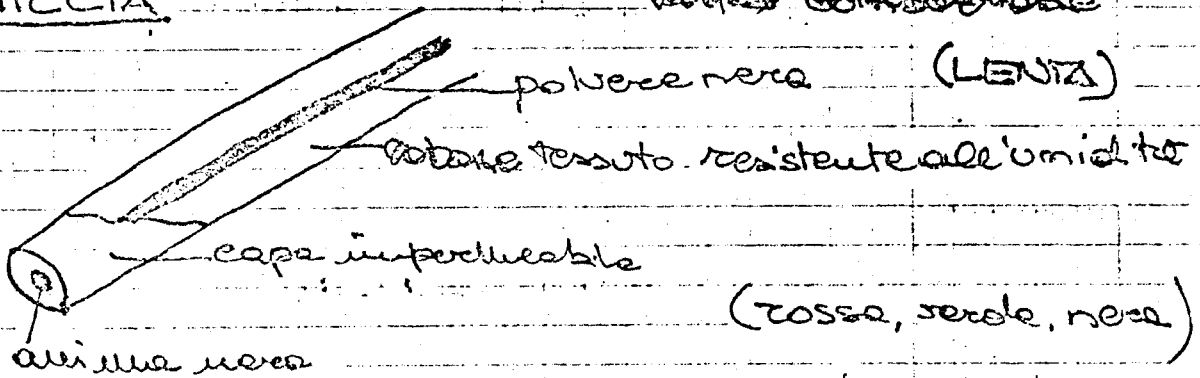 MICCIA
polvere nera (LENTA)
cotone tessuto resistente all'umidità
capa impermeabile
(rossa, verde, nera)
anima nera